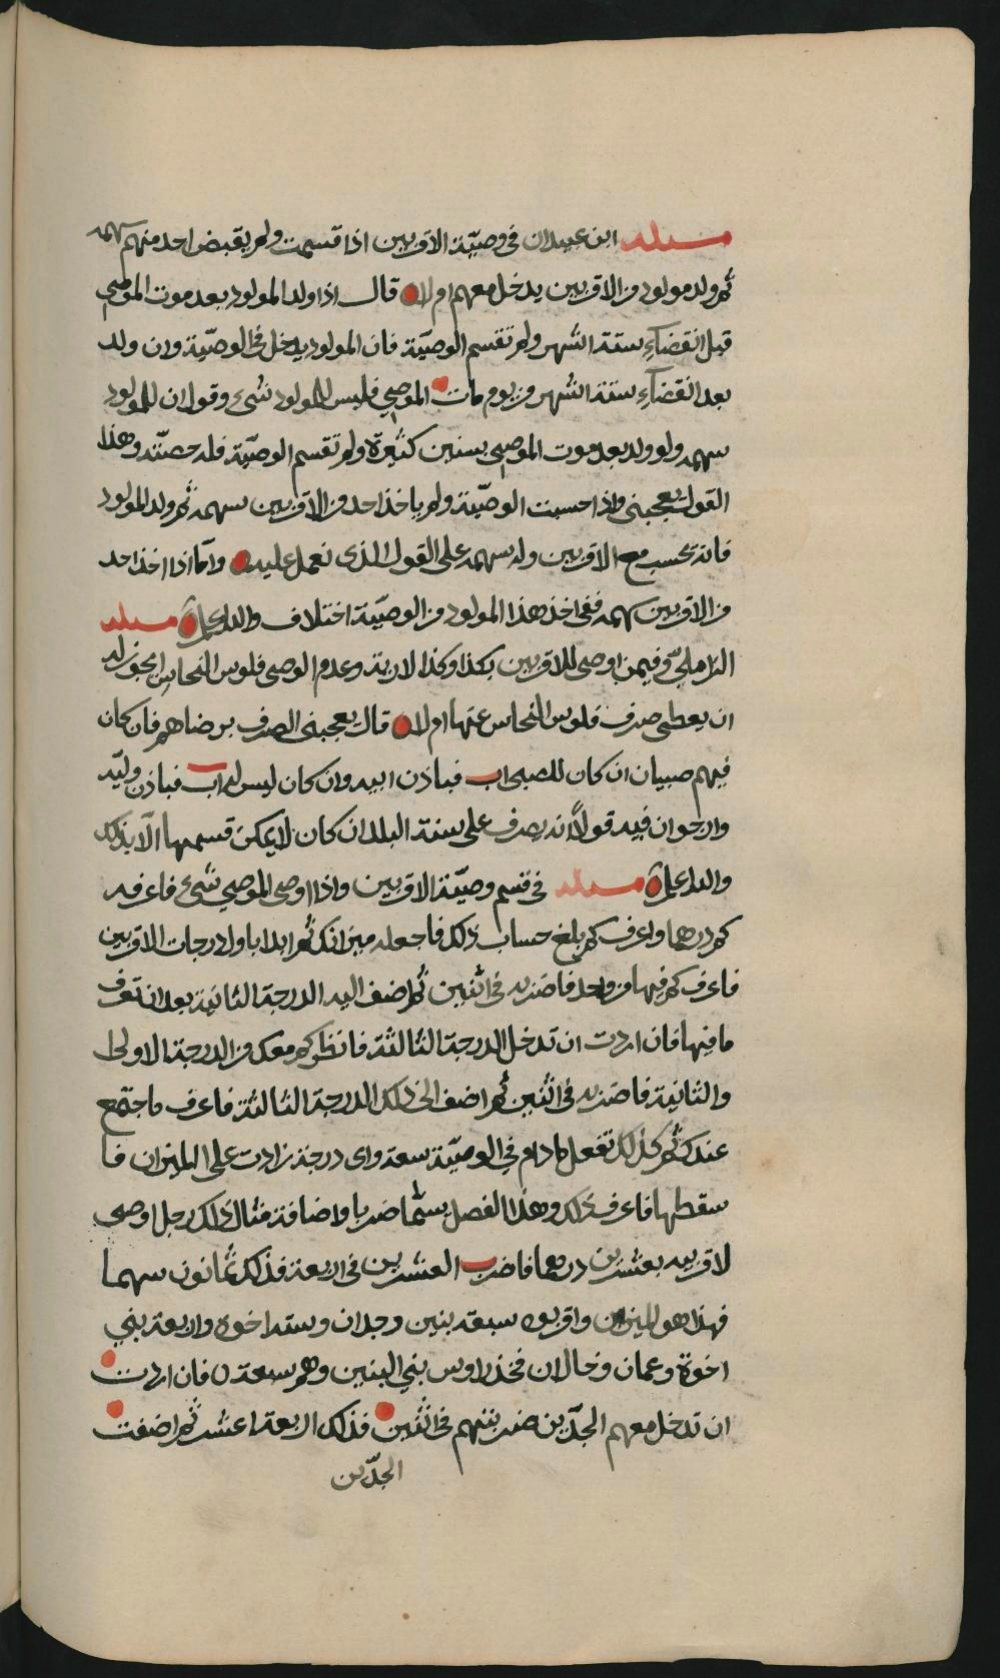 مسئلة ابن عبيدان في وصيّة الاقربين اذا قسمت ولم يقبض احد منهم سهمه
ثم ولد مولود من الاقربين يدخل معهم ام لا قال اذا ولد المولود بعد موت الموصي
قبل انقضاء ستة اشهر ولم تقسم الوصيّة فان المولود يدخل في الوصيّة وان ولد
بعد انقضاء ستة اشهر من يوم مات الموصي فليس للمولود شيء وقول ان للمولود
سهمه ولو ولد بعد موت الموصي بسنين كثيرة ولم تقسم الوصيّة فله حصته وهذا
القول يعجبني واذا حسبت الوصيّة ولم ياخذ احد من الاقربين سهمه ثم ولد المولود
فانه يحسب مع الاقربين وله سهمه على القول الذي نعمل عليه وامّا اذا اخذ احد
من الاقربين سهمه ففي اخذ هذا المولود من الوصيّة اختلاف والله اعلم مسئلة
الزاملي وفيمن اوصى للاقربين بكذا وكذا لارية وعدم الوصي فلوس النحاس ايجوز له
ان يعطي صرف فلوس النحاس عنها ام لا قال يعجبني الصرف برضاهم فان كان
فيهم صبيان ان كان للصبي اب فباذن ابيه وان كان ليس له اب فباذن وليّه
وارجو ان فيه قولاً انه يصرف على سنة البلد ان كان لا يمكن قسمها الّا بذلك
والله اعلم مسئلة في قسم وصيّة الاقربين واذا اوصى الموصي بشيء فاعرفه
كم درهما واعرف كم بلغ حساب ذلك فاجعله ميزانك ثم ابدا باول درجات الاقربين
فاعرف كم فيها من واحد فاضربه في اثنين ثم اضف اليه الدرجة الثانية بعد ان تعرف
ما فيها فان اردت ان تدخل الدرجة الثالثة فانظر كم معك من الدرجة الاولى
والثانية فاضربه في اثنين ثم اضف الى ذلك الدرجة الثالثة فاعرف ما اجتمع
عندك ثم كذلك تفعل مادام في الوصيّة سعة واي درجة زادت على الميزان فا
سقطها فاعرف ذلك وهذا الفصل يسمّا ضربا واضافة مثال ذلك رجل اوصى
لاقربيه بعشرين درهما فاضرب العشرين في اربعة فذلك ثمانون سهما
فهذا هو الميزان واقربوه سبعة بنين وجدان وستة اخوة واربعة بني
اخوة وعمان وخالان فخذ روس بني البنين وهم سبعة فان اردت
ان تدخل معهم الجدّين ضربتهم في اثنين فذلك اربعة عشر ثم اضفت
الجدّين